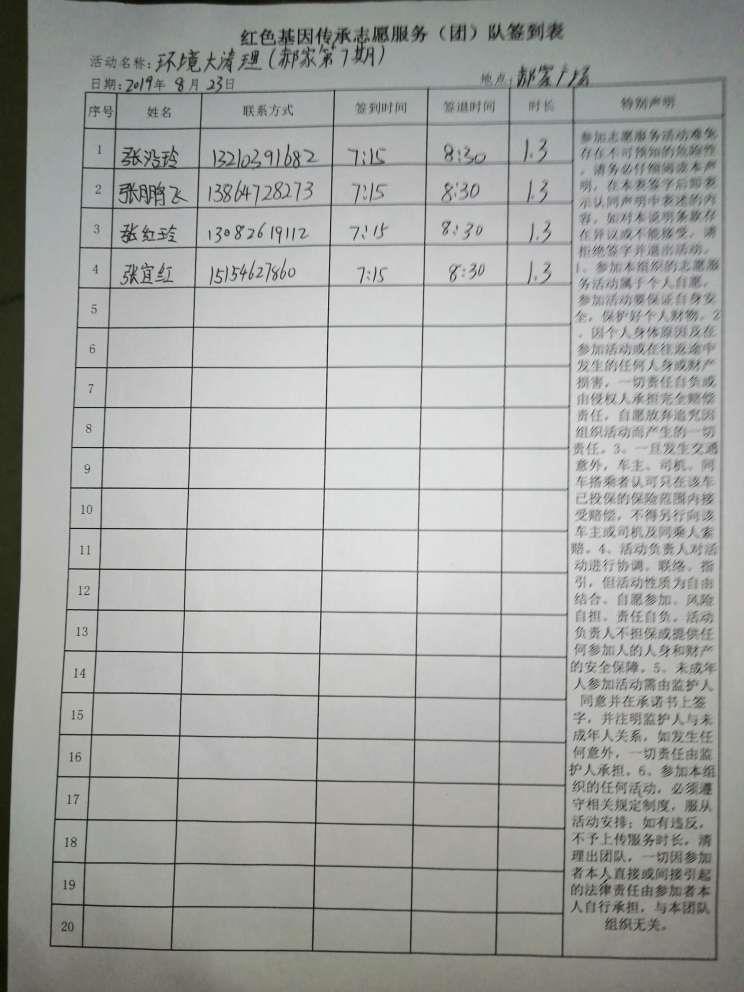 红色基因传承志愿服务（团）队签到表
活动名称：环境大清理（郝家第7期）
日期：2019年 8月 23日 地点：郝家广场
序号 姓名 联系方式 签到时间 签退时间 时长 特别声明
1 张浩玲 13210391682 7:15 8:30 1.3
2 张鹏飞 13864728273 7:15 8:30 1.3
3 张红玲 13082619112 7:15 8:30 1.3
4 张宜红 15154627860 7:15 8:30 1.3
5
6
7
8
9
10
11
12
13
14
15
16
17
18
19
20
参加志愿服务活动难免
存在不可预知的危险性
，请务必仔细阅读本声
明，在本表签字后即表
示认同声明中表述的内
容。如对本说明条款存
在异议或不能接受，请
拒绝签字并退出活动。
1、参加本组织的志愿服
务活动属于个人自愿，
参加活动要保证自身安
全，保护好个人财物。2
、因个人身体原因及在
参加活动或在往返途中
发生的任何人身或财产
损害，一切责任自负或
由侵权人承担完全赔偿
责任，自愿放弃追究因
组织活动而产生的一切
责任。3、一旦发生交通
意外，车主、司机、同
车搭乘者认可只在该车
已投保的保险范围内接
受赔偿，不得另行向该
车主或司机及同乘人索
赔。4、活动负责人对活
动进行协调、联络、指
引，但活动性质为自由
结合、自愿参加、风险
自担、责任自负。活动
负责人不担保或提供任
何参加人的人身和财产
的安全保障。5、未成年
人参加活动需由监护人
同意并在承诺书上签
字，并注明监护人与未
成年人关系，如发生任
何意外，一切责任由监
护人承担。6、参加本组
织的任何活动，必须遵
守相关规定制度，服从
活动安排；如有违反，
不予上传服务时长，清
理出团队，一切因参加
者本人直接或间接引起
的法律责任由参加者本
人自行承担，与本团队
组织无关。